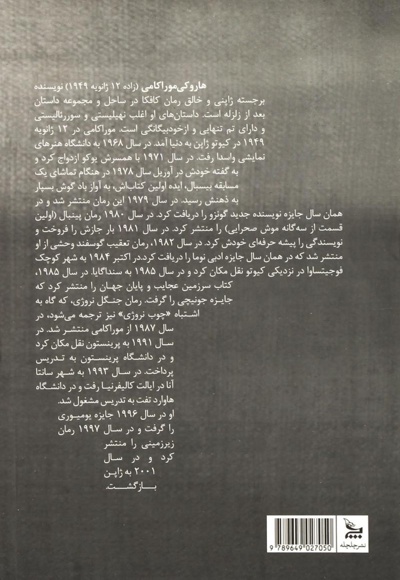 هاروکی موراکامی (زاده ۱۲ ژانویه ۱۹۴۹) نویسنده
برجسته ژاپنی و خالق رمان کافکا در ساحل و مجموعه داستان
بعد از زلزله است. داستان‌های او اغلب نهیلیستی و سوررئالیستی
و دارای تم تنهایی و ازخودبیگانگی است. موراکامی در ۱۲ ژانویه
۱۹۴۹ در کیوتو ژاپن به دنیا آمد. در سال ۱۹۶۸ به دانشگاه هنرهای
نمایشی واسدا رفت. در سال ۱۹۷۱ با همسرش یوکو ازدواج کرد و
به گفته خودش در آوریل سال ۱۹۷۸ در هنگام تماشای یک
مسابقه بیسبال، ایده اولین کتاب‌اش، به آواز باد گوش بسپار
به ذهنش رسید. در سال ۱۹۷۹ این رمان منتشر شد و در
همان سال جایزه نویسنده جدید گونزو را دریافت کرد. در سال ۱۹۸۰ رمان پینبال (اولین
قسمت از سه‌گانه موش صحرایی) را منتشر کرد. در سال ۱۹۸۱ بار جازش را فروخت و
نویسندگی را پیشه حرفه‌ای خودش کرد. در سال ۱۹۸۲، رمان تعقیب گوسفند وحشی از او
منتشر شد که در همان سال جایزه ادبی نوما را دریافت کرد. در اکتبر ۱۹۸۴ به شهر کوچک
فوجیتساوا در نزدیکی کیوتو نقل مکان کرد و در سال ۱۹۸۵ به سنداگایا. در سال ۱۹۸۵،
کتاب سرزمین عجایب و پایان جهان را منتشر کرد که
جایزه جونیچی را گرفت. رمان جنگل نروژی، که گاه به
اشتباه «چوب نروژی» نیز ترجمه می‌شود، در
سال ۱۹۸۷ از موراکامی منتشر شد. در
سال ۱۹۹۱ به پرینستون نقل مکان کرد
و در دانشگاه پرینستون به تدریس
پرداخت. در سال ۱۹۹۳ به شهر سانتا
آنا در ایالت کالیفرنیا رفت و در دانشگاه
هاوارد تفت به تدریس مشغول شد.
او در سال ۱۹۹۶ جایزه یومیوری
را گرفت و در سال ۱۹۹۷ رمان
زیرزمینی را منتشر
کرد و در سال
۲۰۰۱ به ژاپن
بازگشت.
نشر چلچله
9 789649 027050